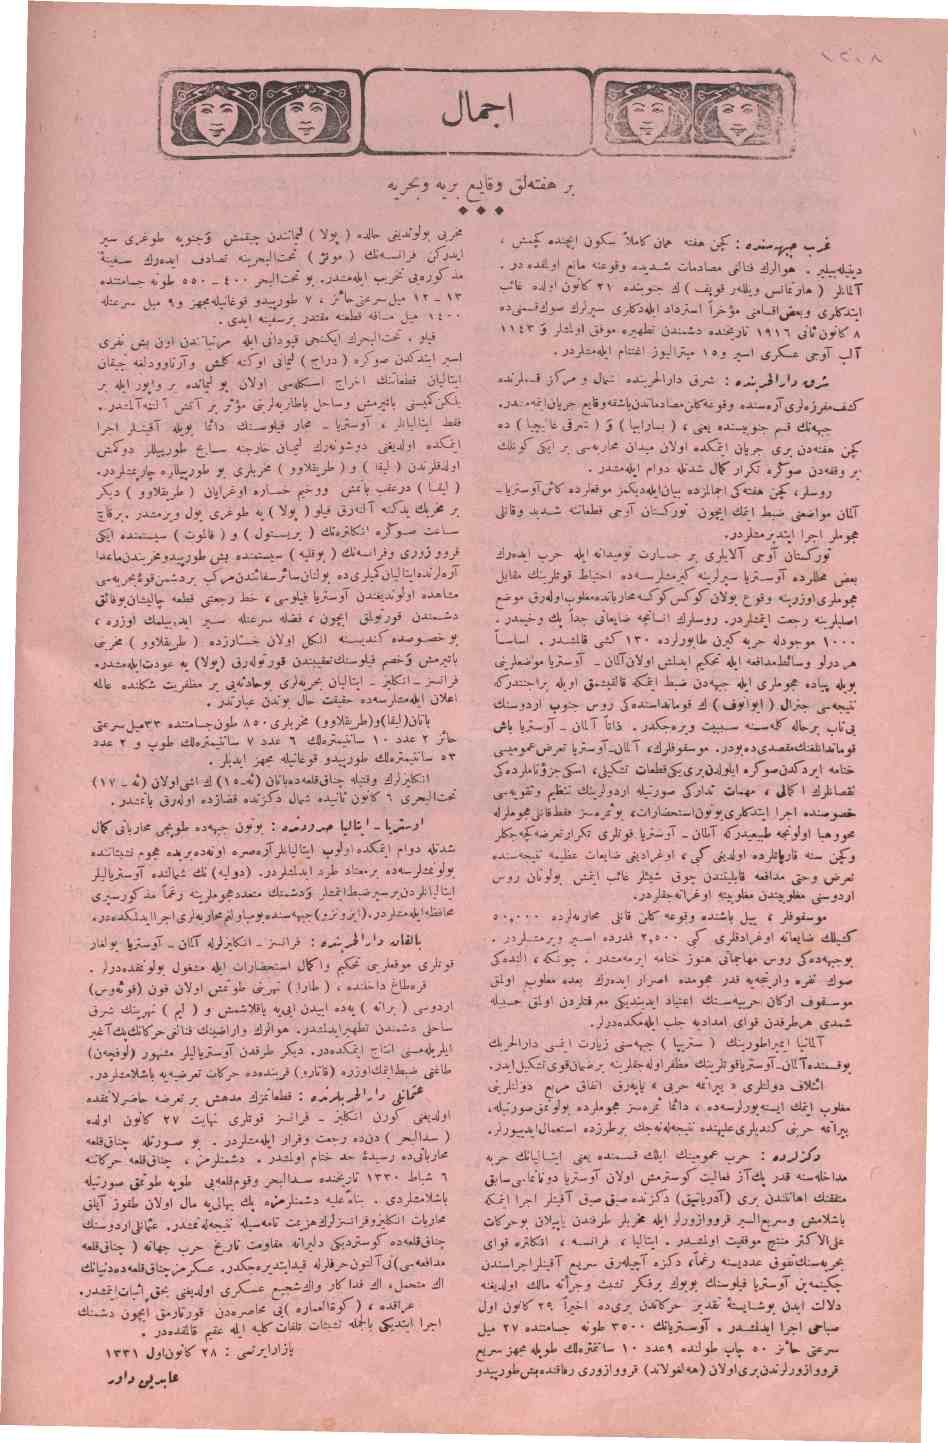 ١٢٠٨
اجمال
بر هفته‌لق وقایع بریه وبحریه
غرب جبهه‌سنده : کچن هفته همان کاملاً سکون ایچنده کچمش ،
دینیله‌بیلیر . هوالرك فنالغی مصادمات شدیده وقوعنه مانع اولمقده در .
آلمانلر ( هارتمانس ویللەر قوپف ) ك جنوبنده ٢١ کانون اولده غائب
ایتدکلری وبعض اقسامنی مؤخراً استرداد ایله‌دکلری سپرلرك صوك قسمنی ده
٨ کانون ثانی ١٩١٦ تاریخنده دشمندن تطهیره موفق اولمشلر و ١١٤٣
آلب آوجی عسکری اسیر و ١٥ میترالیوز اغتنام ایله‌مشلردر .
شرق دارالحربنده : شرق دارالحربنده شمال و مرکز قسملرنده
کشف مفرزه‌لری آره‌سنده وقوعه‌کلن مصادماتدن باشقه وقایع جریان ایتمه‌مشدر.
جبهه‌نك قسم جنوبیسنده یعنی ، ( بسارابیا ) و ( شرقی غالیچیا ) ده
کچن هفته‌دن بری جریان ایتمکده اولان میدان محاربه‌سی بر ایکی کونلك
بر وقفه‌دن صوکره تکرار کمال شدتله دوام ایله‌مشدر .
روسلر، کچن هفته‌کی اجمالمزده بیان ایله‌دیکمز موقعلرده کائن آوستریا ــ
آلمان مواضعنی ضبط ایتمك ایچون تورکستان آوجی قطعاتنه شدید وقانلی
هجوملر اجرا ایتدیرمشلردر.
تورکستان آوجی آلایلری بر جسارت نومیدانه ایله حرب ایده‌رك
بعض محللرده آوستریا سپرلرینه کیرمشلرسه‌ده احتیاط قوتلرینك مقابل
هجوملری اوزرینه وقوع بولان کوکس کوکسه محارباتده مغلوب اوله‌رق موضع
اصلیلرینه رجعت ایتمشلردر. روسلرك انسانجه ضایعاتی جداً پك وخیمدر .
١٠٠٠ موجودله حربه کیرن طابورلرده ١٣٠ کشی قالمشدر . اساساً
هر درلو وسائط مدافعه ایله تحکیم ایدلمش اولان آلمان ــ آوستریا مواضعلرینی
بویله پیاده هجوملری ایله جبهه‌دن ضبط ایتمکه قالقیشمق اویله براجنتدرکه
نتیجه‌سی جنرال ( ایوانوف ) ك قوماندا‌سنده‌کی روس جنوب اردوسنك
بی‌تاب برحاله کلمه‌سنه سببیت ویره‌جکدر . ذاتاً آلمان ــ آوستریا باش
قوماندانلغنك مقصدی ده بودر. موسقوفلرك، آلمان ــ آوستریا تعرض عمومیسی
ختامه ایردکدن صوکره ایلولدن بری یکی قطعات تشکیلی، اسکی جزؤتاملرده‌کی
نقصانلرك اکمالی ، مهمات تدارکی صورتیله اردولرینك تنظیم وتقویه‌سی
خصوصنده اجرا ایتدکلری بوتون استحضارات، بو ثمره‌سز فقط قانلی هجوملرله
محووهبا اولونجه طبیعیدرکه آلمان ــ آوستریا قوتلری تکرار تعرضه کچه‌جکلر
وکچن سنه قارپاتلرده اولدیغی کبی ، اوغرادیغی ضایعات عظیمه نتیجه‌سنده
تعرض وحتی مدافعه قابلیتندن چوق شیئلر غائب ایتمش بولونان روس
اردوسنی مغلوبیتدن مغلوبیته اوغراته‌جقلردر.
موسقوفلر ، ییل باشنده وقوعه کلن قانلی محاربه‌لرده ٥٠,٠٠٠
کشیلك ضایعاته اوغرادقلری کبی ٢,٥٠٠ قدرده اسیر ویرمشلردر .
بوجبهه‌ده‌کی روس مهاجماتی هنوز ختامه ایرمه‌مشدر . چونکه ، النده‌کی
صوك نفره وارنجه‌یه قدر هجومده اصرار ایده‌رك بعده مغلوب اولمق
موسقوف ارکان حربیه‌سنك اعتیاد ایدیندیکی معرفتلردن اولمق حسبیله
شمدی هر طرفدن قوای امدادیه جلب ایله‌مکده‌درلر.
آلمانیا ایمپراطورینك ( ستریپا ) جبهه‌سنی زیارت ایتمسی دارالحربك
بوقسمنده آلمان ــ آوستریا قوتلرینك مظفر اوله‌جقلرینه برضمان قوی تشکیل ایدر.
ائتلاف دولتلری « بیرآنه حربی » یاپه‌رق اتفاق مربع دولتلرینی
مغلوب ایتمك ایسته‌یورلرسه‌ده ، دائما ثمره‌سز هجوملرده بولونمق صورتیله،
ییرآتمه حربنی کندیلری علیهنده نتیجه‌لنه‌جك برطرزده استعمال ایدیورلر.
دکزلرده : حرب عمومینك ایلك قسمنده یعنی ایتالیانك حربه
مداخله‌سنه قدر پك‌آز فعالیت کوسترمش اولان آوستریا دونانماسی سابق
متفقنك اهانتندن بری ( آدریاتیق ) دکزنده صیق صیق آقینلر اجرا ایتمکه
باشلامش وسریع السیر قرووازورلر ایله مخربلر طرفندن یاپیلان بوحرکات
علی‌الاکثر منتج موفقیت اولمشدر . ایتالیا ، فرانسه ، انکلتره قوای
بحریه‌سنك تفوق عددیسنه رغماً، دکزه آچیله‌رق سریع آقینلر اجراسندن
چکینمه‌ین آوستریا فیلوسنك بویوك برفکر تشبث وجرأته مالك اولدیغنه
دلالت ایدن بوشایستهٔ تقدیر حرکاتدن بری‌ده اخیراً ٢٩ کانون اول
صباحی اجرا ایدلمشدر . آوستریانك ٣٥٠٠ طونه جسامتنده ٢٧ میل
سرعتی حائز ٥٠ چاپ طولنده ٩ عدد ١٠ سانتیمتره‌لك طوپله مجهز سریع
قرووازورلرندن بری اولان (هه‌لغولاند) قرووازوری رفاقتنده بش طورپیدو
مخربی بولوندیغی حالده ( پولا ) لیماندن چیقمش وجنوبه طوغری سیر
ایدرکن فرانسه‌نك ( مونژ ) تحت‌البحرینه تصادف ایده‌رك سفینهٔ
مذکوره‌یی تخریب ایله‌مشدر. بو تحت‌البحر ٤٠٠ ــ ٥٥٠ طونه جسامتنده
١٢ ــ ١٣ میل سرعتی حائز ، ٧ طورپیدو قوغانیله مجهز و ٩ میل سرعتله
١٤٠٠ میل مسافه قطعنه مقتدر برسفینه ایدی .
فیلو . تحت‌البحرك ایکنجی قپودانی ایله مرتباتندن اون بش نفری
اسیر ایتدکدن صوکره ( دراج ) لیمانی اوکنه کلمش وآرناوودلغه چیقان
ایتالیان قطعاتنك اخراج اسکله‌سی اولان بو لیمانده بر واپور ایله بر
یلکن کمیسنی باتیرمش وساحل باطاریه‌لرینی مؤثر بر آتش آلتنه آلمشدر .
فقط ایتالیانلر ، آوستریا ــ مجار فیلوسنك دائما بویله آقینلر اجرا
ایتمکده اولدیغنی دوشونه‌رك لیمان خارجنه سابح طورپیللر دوکمش
اولدقلرندن ( لیقا ) و ( طریقلاوو ) مخربلری بو طورپیللره چارپمشلردر.
( لیقا ) درعقب باتمش ووخیم خساره اوغرایان ( طریقلاوو ) دیکر
بر مخربك یدکنه آلنه‌رق فیلو ( پولا ) یه طوغری یول ویرمشدر. برقاچ
ساعت صوکره انکلتره‌نك ( بریستول ) و ( فالموت ) سیستمنده ایکی
قرووازوری وفرانسه‌نك ( بوقلیه ) سیستمنده بش طورپیدو مخربندن ماعدا
آره‌لرنده ایتالیان کمیلری ده بولنان سائر سفائندن مرکب بر دشمن قوهٔ بحریه‌سی
مشاهده اولوندیغندن آوستریا فیلوسی ، خط رجعتی قطعه چالیشان بوفائق
دشمندن قورتولمق ایچون ، فضله سرعتله سیر ایده‌بیلمك اوزره ،
بو خصوصده کندیسنه انکل اولان خساره‌زده ( طریقلاوو ) مخربنی
باتیرمش وخصم فیلوسنك تعقیبندن قورتوله‌رق (پولا) یه عودت ایله‌مشدر.
فرانسز ــ انکلیز ــ ایتالیان بحریه‌لری بوحادثه‌یی بر مظفریت شکلنده عالمه
اعلان ایله‌مشلرسه‌ده حقیقت حال بوندن عبارتدر .
باتان (لیقا) و (طریقلاوو) مخربلری ٨٥٠ طون جسامتنده ٣٣ میل سرعتی
حائز ٢ عدد ١٠ سانتیمتره‌لك ٦ عدد ٧ سانتیمتره‌لك طوپ و ٢ عدد
٥٣ سانتیمتره‌لك طورپیدو قوغانیله مجهز ایدیلر .
انکلیزلرك وقتیله چناق‌قلعه‌ده باتان (ئه‌ــ١٥) ك اشی اولان (ئه ــ ١٧)
تحت‌البحری ٦ کانون ثانیده شمال دکزنده قضازده اوله‌رق باتمشدر.
اوستریا ــ ایتالیا حدودنده : بوتون جبهه‌ده طوپجی محارباتی کمال
شدتله دوام ایتمکده اولوب ایتالیانلر آره‌صره اوته‌ده بریده هجوم تشبثاتنده
بولونمشلرسه‌ده برمعتاد طرد ایدلمشلردر. (دولیه) نك شمالنده آوستریالیلر
ایتالیانلردن برسپر ضبط ایتمشلر ودشمنك متعدد هجوملرینه رغماً مذکور سپری
محافظه ایله‌مشلردر. (ایزونزو) جبهه‌سنده بومبا ولغم محاربه‌لری اجرا ایدلمکده‌در.
بالقان دارالحربنده : فرانسز ــ انکلیزلرله آلمان ــ آوستریا بولغار
قوتلری موقعلرینی تحکیم واکمال استحضارات ایله مشغول بولونمقده‌درلر .
قره‌طاغ داخلنده ، ( طارا ) نهرینی طوتمش اولان فون (قوئه‌وس)
اردوسی ( برانه ) یه‌ده ایبدن ایی‌یه یاقلاشمش و ( لیم ) نهرینك شرق
ساحلی دشمندن تطهیر ایدلمشدر. هوالرك واراضینك فنالغی حرکاتك پك آغیر
ایلریله‌مسنی انتاج ایتمکده‌در. دیکر طرفدن آوستریالیلر مشهور (لوقچه‌ن)
طاغنی ضبط ایتمك اوزره (قاتارو) قربنده‌ده حرکات تعرضیه‌یه باشلامشلردر.
عثمانلی دارالحربلرنده : قطعاتمزك مدهش بر تعرضه حاضرلانمقده
اولدیغنی کورن انکلیز ــ فرانسز قوتلری نهایت ٢٧ کانون اولده
( سدالبحر ) دن‌ده رجعت وفرار ایله‌مشلردر . بو صورتله چناق‌قلعه
محارباتی ده رسیدهٔ حد ختام اولمشدر . دشمنلرمز ، چناق‌قلعه حرکاتنه
٦ شباط ١٣٣٠ تاریخنده سدالبحر وقوم‌قلعه‌یی طوپه طوتمق صورتیله
باشلامشلردی . بناءً علیه دشمنلرمزه پك بهالی‌یه مال اولان طقوز آیلق
محاربات انکلیز وفرانسزلرك هزیمت تامه‌سیله نتیجه‌لنمشدر. عثمانلی اردوسنك
چناق‌قلعه‌ده کوستردیکی دلیرانه مقاومت تاریخ حرب جهانه ( چناق‌قلعه
مدافعه‌سی ) نی آلتون حرفلرله قید ایتدیره‌جکدر. عسکرمز چناق‌قلعه‌ده دنیانك
اك متحمل، اك فداکار واك شجیع عسکری اولدیغنی بحق اثبات ایتمشدر.
عراقده ، ( کوت‌العماره ) یی محاصره‌دن قورتارمق ایچون دشمنك
اجرا ایتدیکی بالجمله تشبثات تلفات کلیه ایله عقیم قالمقده‌در .
بازارایرتسی : ٢٨ کانون اول ١٣٣١
عابدین داور